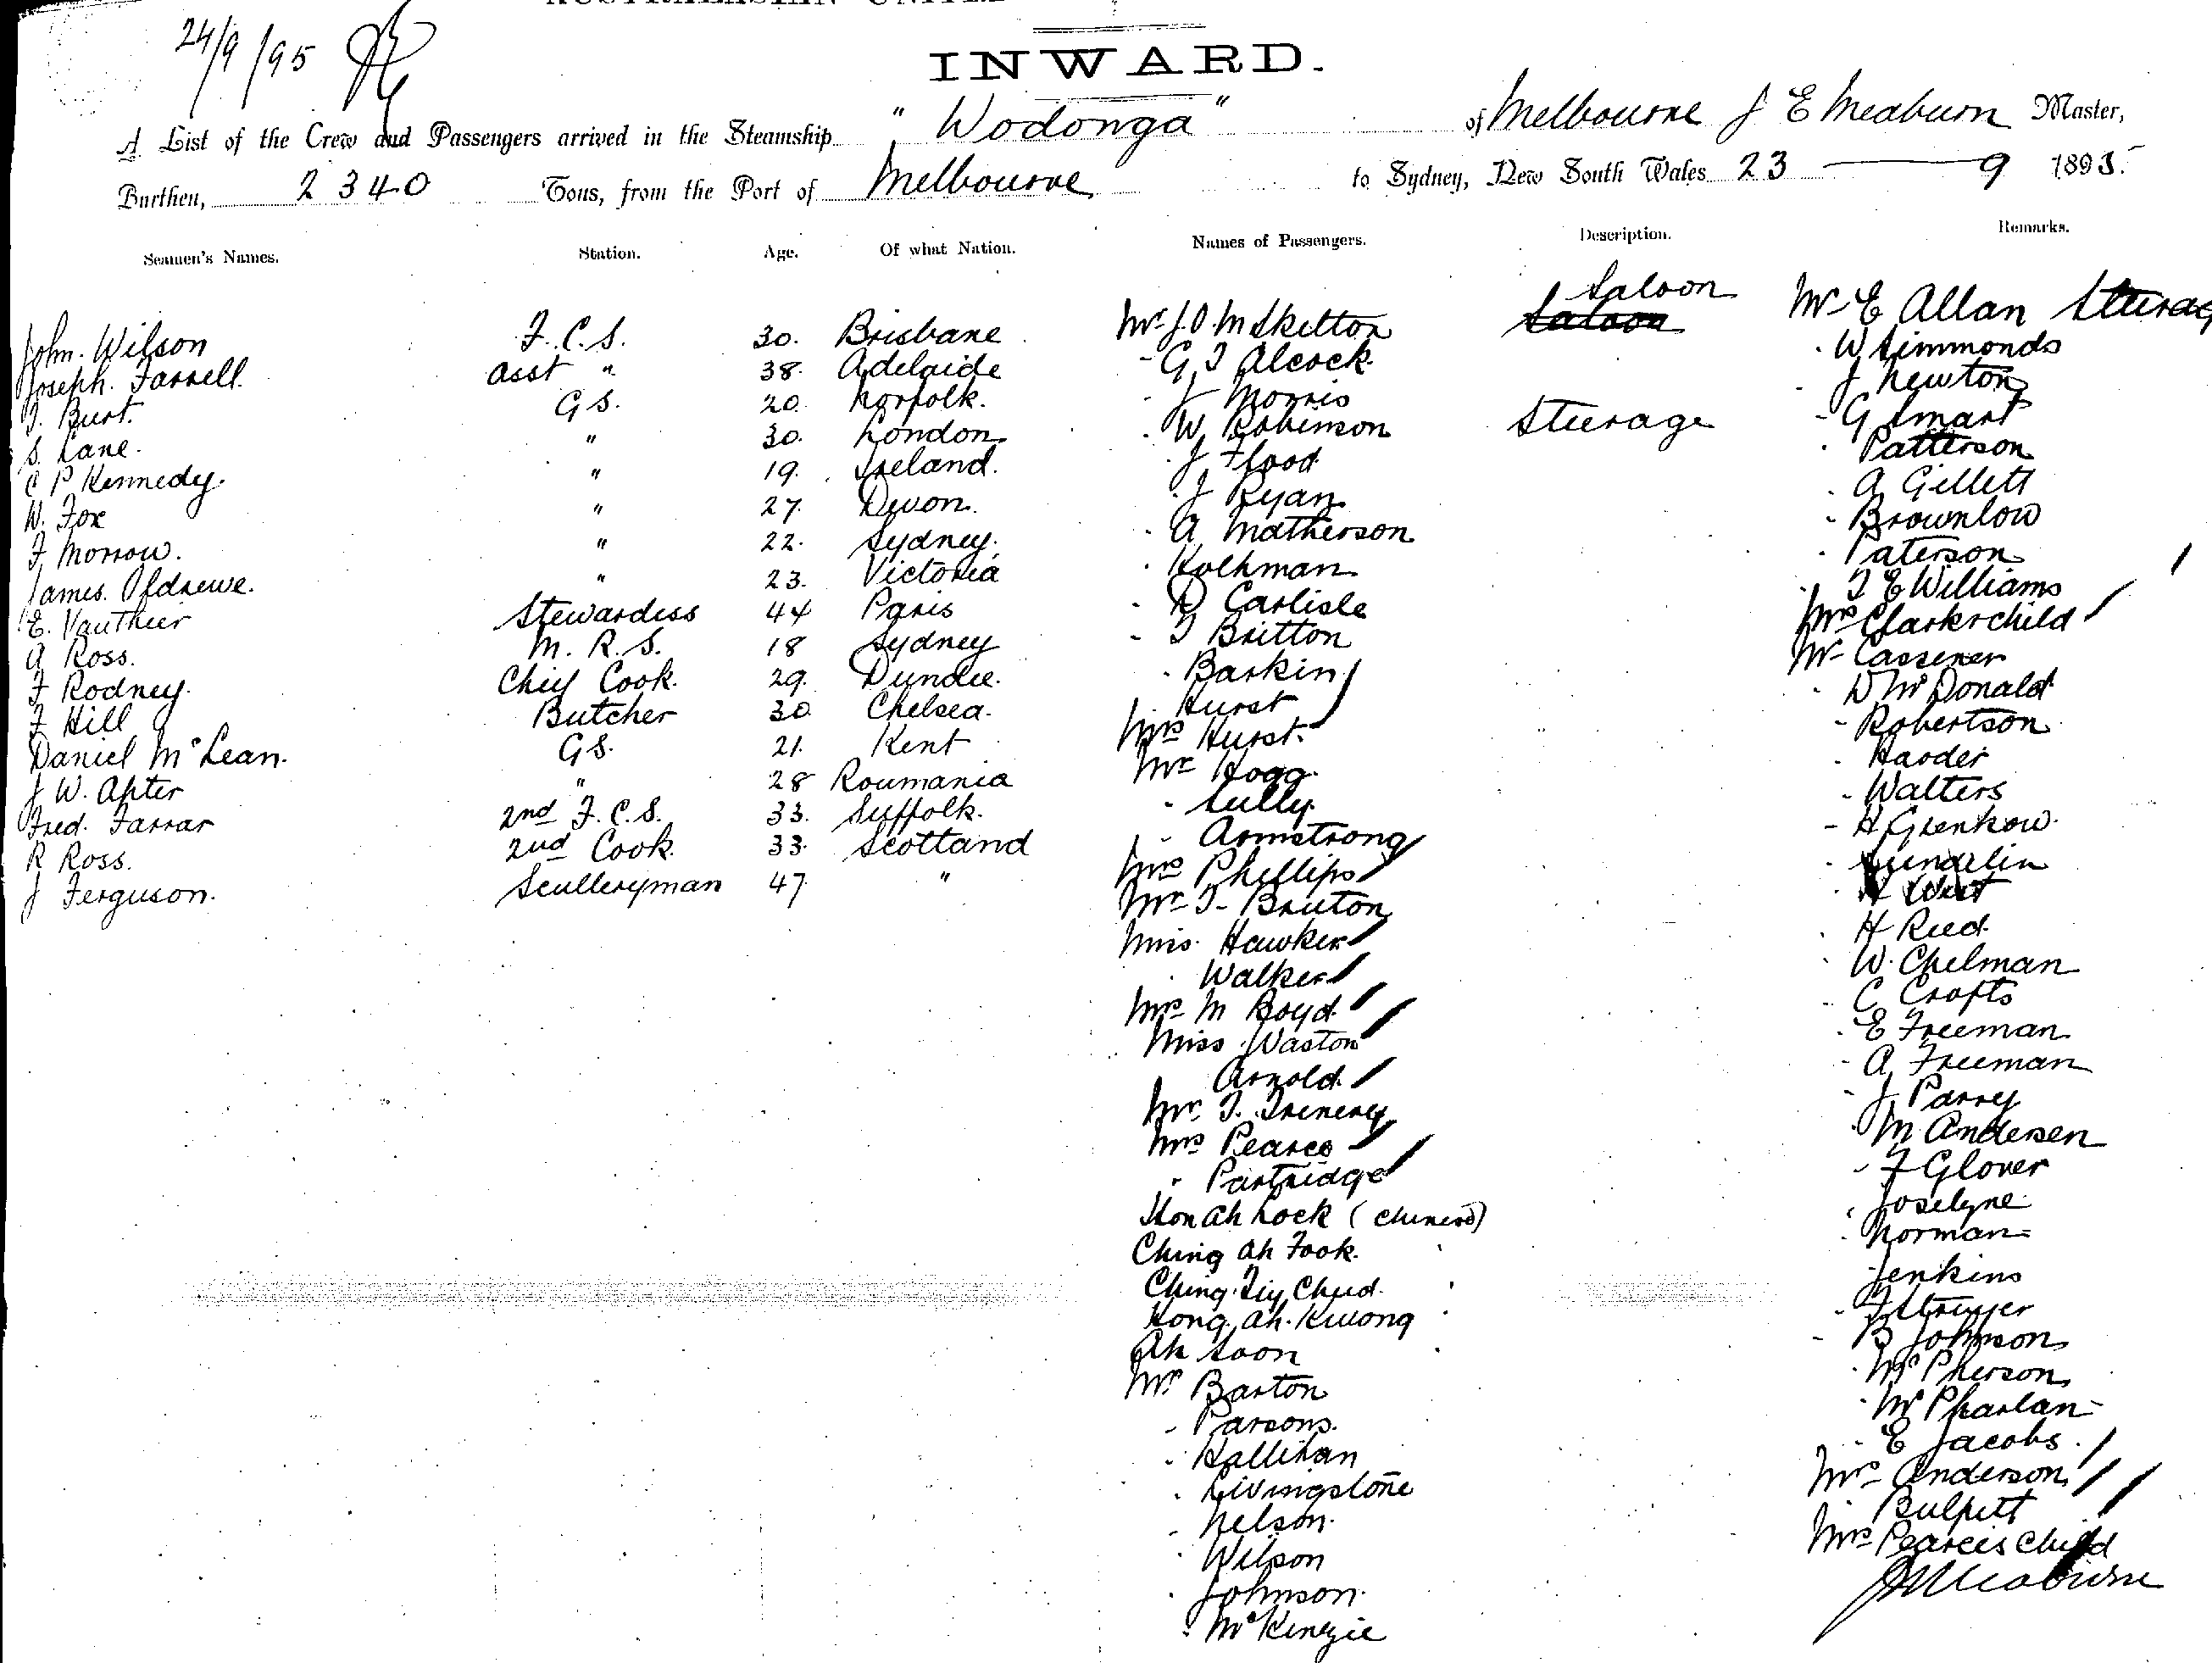 24/9/95
INWARD.
A List of the Crew and Passengers arrived in the Steamship "Wodonga" of Melbourne J E Meaburn Master,
Burthen, 2340 Tons, from the Port of Melbourne to Sydney, New South Wales 23 — 9 1895.
Seamen's Names. Station. Age. Of what Nation. Names of Passengers. Description. Remarks.
John. Wilson F.C.S. 30. Brisbane
Joseph. Farrell. asst " 38. Adelaide
T. Burt. G S. 20. Norfolk.
S. Lane. " 30. London.
C P Kennedy. " 19. Ireland.
W. Fox " 27. Devon.
F. Morrow. " 22. Sydney.
James. Oldrewe. " 23. Victoria
E. Vauthier Stewardess 44 Paris
A Ross. M. R. S. 18 Sydney
F Rodney. Chief Cook. 29. Dundee.
F Hill Butcher 30 Chelsea.
Daniel McLean. G S. 21. Kent
J W. Apter " 28 Roumania
Fred. Farrar 2nd F.C.S. 33. Suffolk.
R Ross. 2nd Cook. 33. Scotland
J Ferguson. Sculleryman 47. "
Mr J.O. McSkelton Saloon Saloon
- G T Alcock.
- J Morris
- W Robinson Steerage
- J Flood
- J Ryan
- A Matherson
- Kolkman
- D Carlisle
- T Britton
- Barkin
- Hurst
Mrs Hurst.
Mr Hogg.
- Lully.
- Armstrong
Mrs Phillips
Mr T. Bruton
Miss. Hawker
- Walker
Mrs M Boyd
Miss. Waston
Arnold.
Mr. T. Trenery
Mrs Pearce
- Partridge
Hon Ah Lock (Chinese)
Ching Ah Fook.
Ching Tiy Chud.
Kong. Ah. Kwong
Ah Soon
Mr Barton
- Parsons.
- Hallihan
- Livingstone
- Nelson.
- Wilson
- Johnson.
- McKenzie
Mr E Allan Steerag
- W Simmonds
- J Newton
- G Smart
- Patterson
- A Gillett
- Brownlow
- Paterson
- T E Williams
Mrs Clark & child
Mr Cassener
- D McDonald
- Robertson
- Harder
- Walters
- H Grenkow.
- Sundelin
- H West
- H Reed.
- W. Chelman
- C Crofts
- E Freeman
- A Freeman
- J Parry
- M Andersen
- F Glover
- Joselyne
- Norman
- Jenkins
- B Johnson
- McPherson
- McPharlan
- E Jacobs.
Mrs Anderson
- Bulpitt
Mrs Pearces Child
J E Meaburn